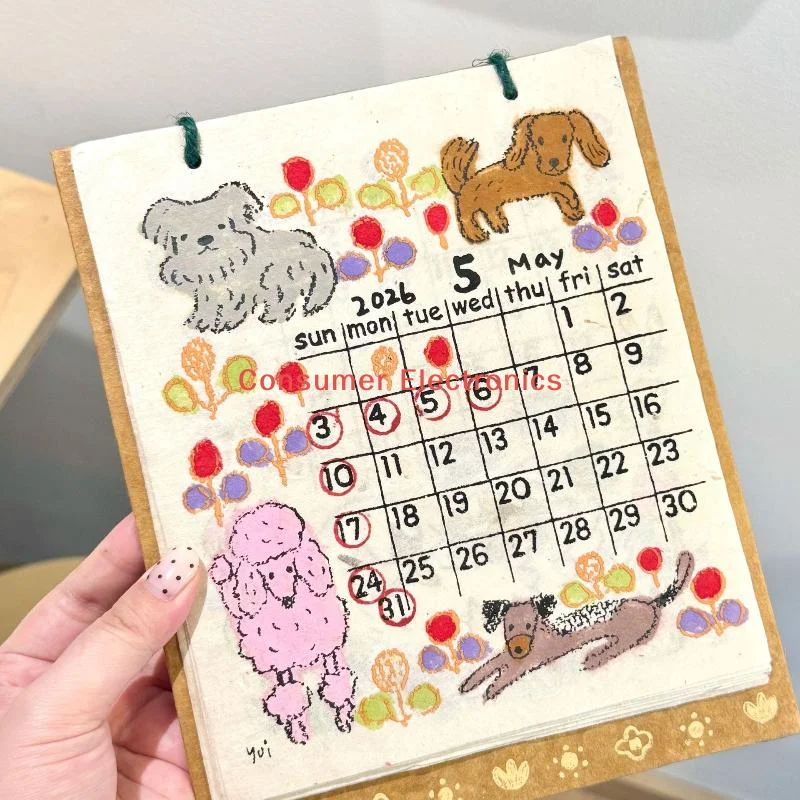 2026 5 May
sun mon tue wed thu fri sat
1 2
Consumer Electronics
3 4 5 6 7 8 9
10 11 12 13 14 15 16
17 18 19 20 21 22 23
24 25 26 27 28 29 30
31
yui